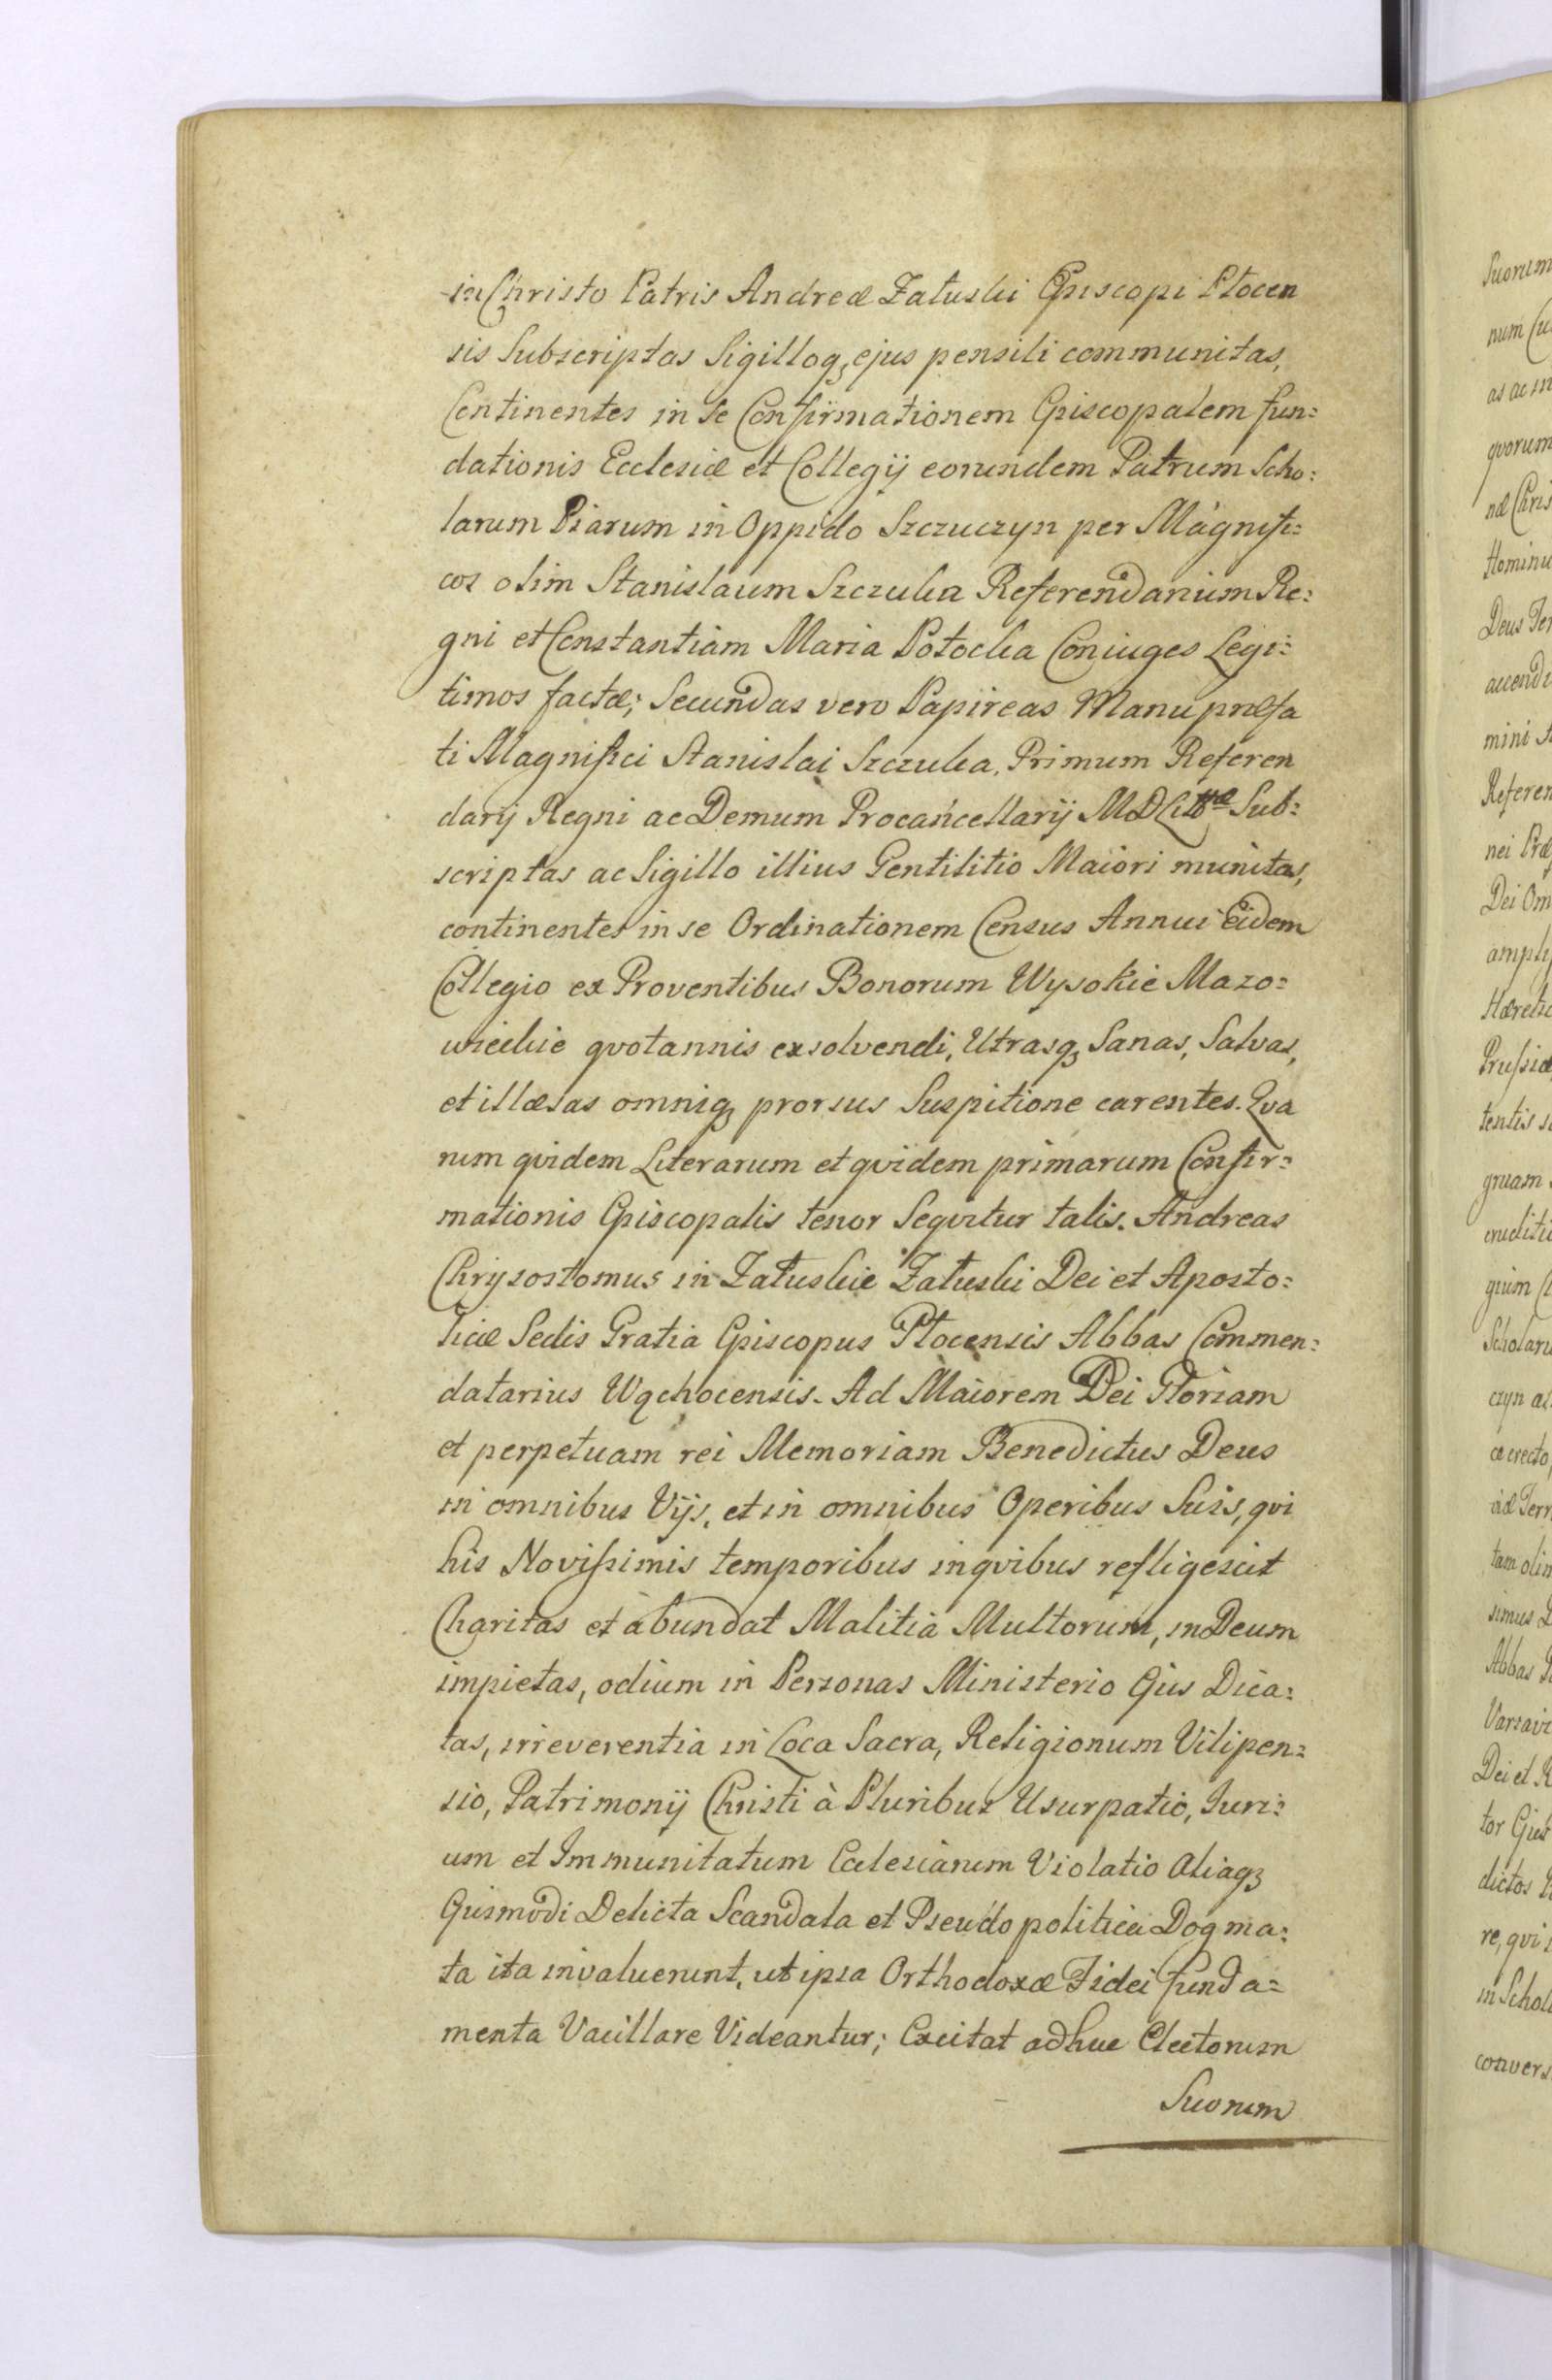 in Christo Patris Andreæ Załuski Episcopi Płocen
sis Subscriptas Sigilloq; ejus pensili communitas,
Continentes in se Confirmationem Episcopalem fun=
dationis Ecclesiæ et Collegij eorundem Patrum Scho:
larum Piarum in Oppido Szczuczyn per Magnifi=
cos olim Stanislaum Szczuka Referendarium Re:
gni et Constantiam Maria Potocka Coniuges Legi=
timos factæ; Secundas vero Papireas Manu præfa
ti Magnifici Stanislai Szczuka, Primum Referen
darij Regni ac Demum Procancellarij MDLittæ Sub=
scriptas ac Sigillo illius Gentilitio Maiori munitas,
continentes in se Ordinationem Census Annui Eidem
Collegio ex Proventibus Bonorum Wysokie Mazo=
wieckie qvotannis exsolvendi, Utrasq; Sanas, Salvas,
et illæsas omniq; prorsus Suspitione carentes. Qva
rum qvidem Literarum et qvidem primarum Confir=
mationis Episcopalis tenor Seqvitur talis. Andreas
Chrysostomus in Załuskie Załuski Dei et Aposto=
licæ Sedis Gratia Episcopus Płocensis Abbas Commen=
datarius Wąchocensis. Ad Maiorem Dei Gloriam
et perpetuam rei Memoriam Benedictus Deus
in omnibus Vijs, et in omnibus Operibus Suis, qvi
his Novissimis temporibus in qvibus refligescit
Charitas et abundat Malitia Multorum, in Deum
impietas, odium in Personas Ministerio Ejus Dica=
tas, irreverentia in Loca Sacra, Religionum Vilipen=
sio, Patrimonij Christi à Pluribus Usurpatio, Juri=
um et Immunitatum Ecclesiarum Violatio aliaq;
Ejusmodi Delicta Scandala et Pseudo politica Dogma=
ta ita invaluerunt, ut ipsa Orthodoxæ Fidei funda=
menta Vacillare Videantur; Excitat adhuc Electorum
Suorum